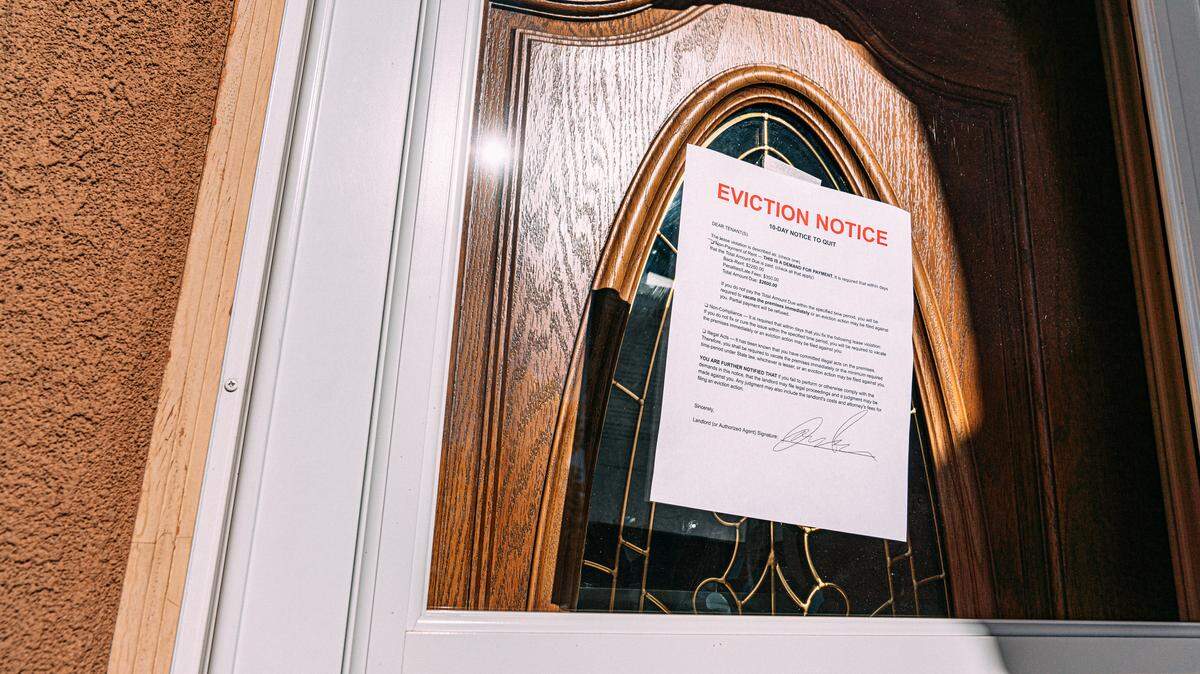 EVICTION NOTICE
10-DAY NOTICE TO QUIT
DEAR TENANT(S)
The lease violation is described as: (check one)
❑ Non-Payment of Rent — THIS IS A DEMAND FOR PAYMENT. It is required that within days
that the Total Amount Due is paid: (check all that apply)
Back-Rent: $2250.00
Penalties/Late Fees: $350.00
Total Amount Due: $2600.00
If you do not pay the Total Amount Due within the specified time period, you will be
required to vacate the premises immediately or an eviction action may be filed against
you. Partial payment will be refused.
❑ Non-Compliance — It is required that within days that you fix the following lease violation:
If you do not fix or cure the issue within the specified time period, you will be required to vacate
the premises immediately or an eviction action may be filed against you.
❑ Illegal Acts — It has been known that you have committed illegal acts on the premises.
Therefore, you shall be required to vacate the premises immediately or the minimum required
time-period under State law, whichever is lesser, or an eviction action may be filed against you.
YOU ARE FURTHER NOTIFIED THAT if you fail to perform or otherwise comply with the
demands in this notice, that the landlord may file legal proceedings and a judgment may be
made against you. Any judgment may also include the landlord's costs and attorney's fees for
filing an eviction action.
Sincerely,
Landlord (or Authorized Agent) Signature: